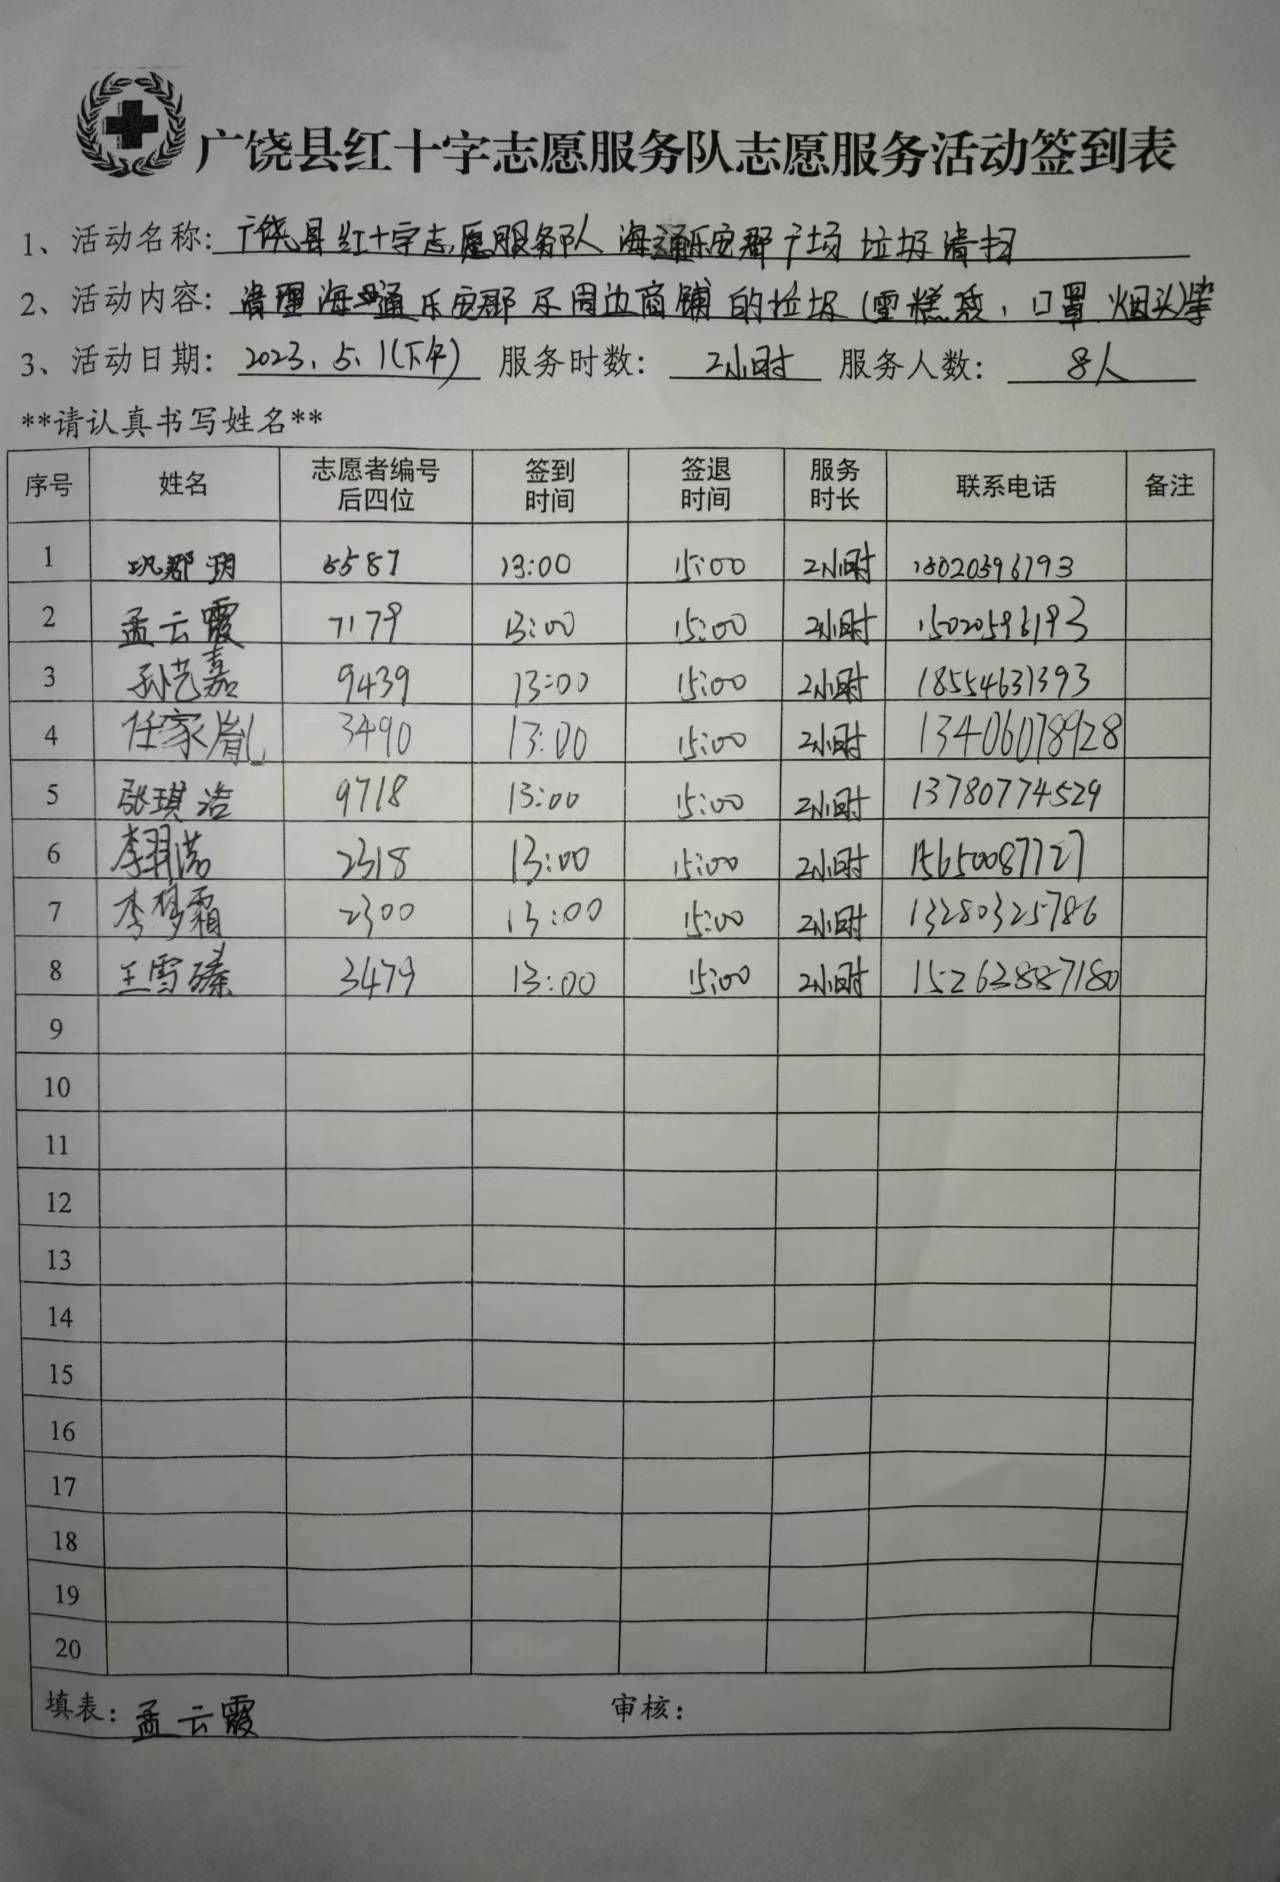 广饶县红十字志愿服务队志愿服务活动签到表
1、活动名称: 广饶县红十字志愿服务队 海通乐安郡广场 垃圾清扫
2、活动内容: 清理海通乐安郡 周边商铺的垃圾(雪糕袋, 口罩 烟头)等
3、活动日期: 2023.5.1(下午) 服务时数: 2小时 服务人数: 8人
**请认真书写姓名**
序号 姓名 志愿者编号后四位 签到时间 签退时间 服务时长 联系电话 备注
1 巩郡玥 5587 13:00 15:00 2小时 15020596193
2 孟云霞 7179 13:00 15:00 2小时 15020596193
3 孙艺嘉 9439 13:00 15:00 2小时 18554631393
4 任家胤 3490 13:00 15:00 2小时 13406078928
5 张琪浩 9718 13:00 15:00 2小时 13780774529
6 李羿潞 2318 13:00 15:00 2小时 15650087727
7 李梦霜 2300 13:00 15:00 2小时 13280325786
8 王雪臻 3479 13:00 15:00 2小时 15263887180
9
10
11
12
13
14
15
16
17
18
19
20
填表: 孟云霞 审核: